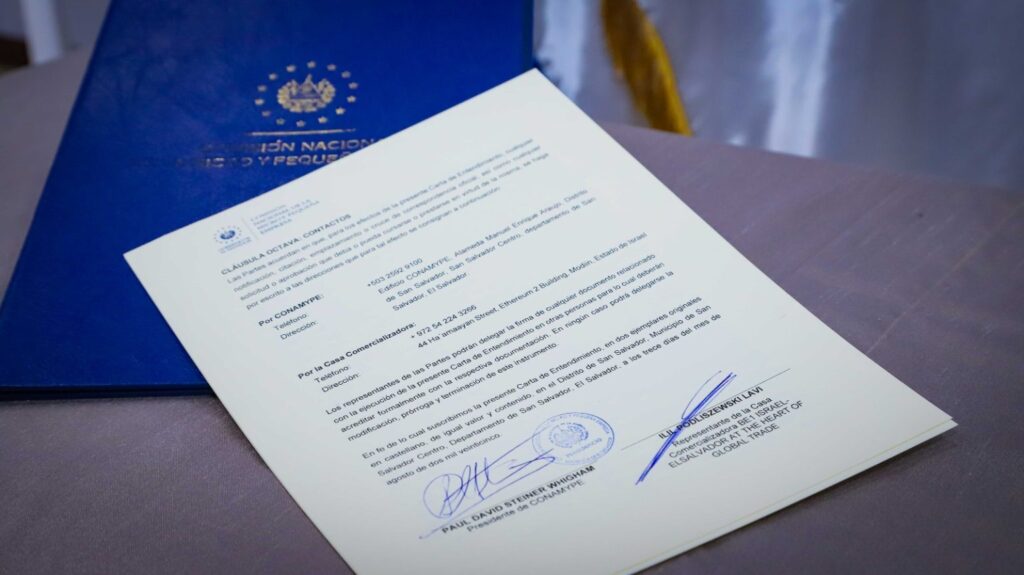 COMISIÓN NACIONAL
Y PEQUE
COMISIÓN
NACIONAL DE LA
MICRO Y PEQUEÑA
EMPRESA
CLÁUSULA OCTAVA: CONTACTOS
Las Partes acuerdan en que, para los efectos de la presente Carta de Entendimiento, cualquier
notificación, citación, emplazamiento o cruce de correspondencia oficial, así como cualquier
solicitud o aprobación que deba o pueda cursarse o prestarse en virtud de la misma, se haga
por escrito a las direcciones que para tal efecto se consignan a continuación:
Por CONAMYPE:
Teléfono: +503 2592 9100
Dirección: Edificio CONAMYPE, Alameda Manuel Enrique Araujo, Distrito
de San Salvador, San Salvador Centro, departamento de San
Salvador, El Salvador
Por la Casa Comercializadora:
Teléfono: + 972 54 224 3266
Dirección: 44 Ha amaayan Street, Ethereum 2 Building, Modiin, Estado de Israel
Los representantes de las Partes podrán delegar la firma de cualquier documento relacionado
con la ejecución de la presente Carta de Entendimiento en otras personas para lo cual deberán
acreditar formalmente con la respectiva documentación. En ningún caso podrá delegarse la
modificación, prórroga y terminación de este instrumento.
En fe de lo cual suscribimos la presente Carta de Entendimiento, en dos ejemplares originales
en castellano, de igual valor y contenido, en el Distrito de San Salvador, Municipio de San
Salvador Centro, Departamento de San Salvador, El Salvador, a los trece días del mes de
agosto de dos mil veinticinco.
PAUL DAVID STEINER WHIGHAM
Presidente de CONAMYPE
ILIL PODLISZEWSKI LAVI
Representante de la Casa
Comercializadora BE1 ISRAEL-
ELSALVADOR AT THE HEART OF
GLOBAL TRADE